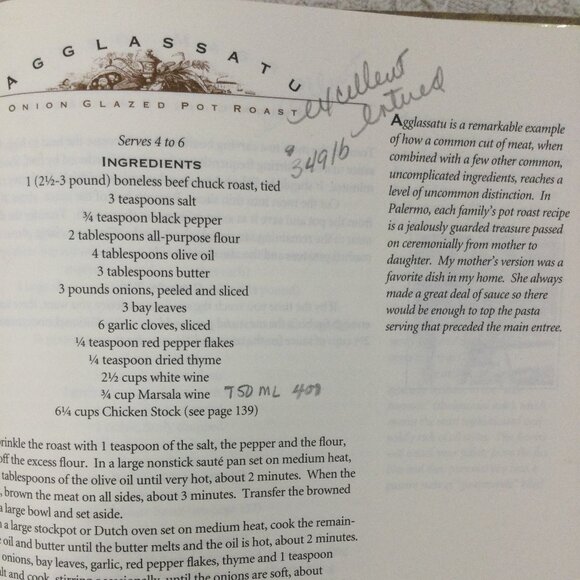 AGGLASSATU
ONION GLAZED POT ROAST
excellent
$3.49 lb
Serves 4 to 6
INGREDIENTS
1 (2½-3 pound) boneless beef chuck roast, tied
3 teaspoons salt
¾ teaspoon black pepper
2 tablespoons all-purpose flour
4 tablespoons olive oil
3 tablespoons butter
3 pounds onions, peeled and sliced
3 bay leaves
6 garlic cloves, sliced
¼ teaspoon red pepper flakes
¼ teaspoon dried thyme
2½ cups white wine
¾ cup Marsala wine 750 ML
6¼ cups Chicken Stock (see page 139)
Agglassatu is a remarkable example
of how a common cut of meat, when
combined with a few other common,
uncomplicated ingredients, reaches a
level of uncommon distinction. In
Palermo, each family's pot roast recipe
is a jealously guarded treasure passed
on ceremonially from mother to
daughter. My mother's version was a
favorite dish in my home. She always
made a great deal of sauce so there
would be enough to top the pasta
serving that preceded the main entree.
rinkle the roast with 1 teaspoon of the salt, the pepper and the flour,
off the excess flour. In a large nonstick sauté pan set on medium heat,
tablespoons of the olive oil until very hot, about 2 minutes. When the
, brown the meat on all sides, about 3 minutes. Transfer the browned
a large bowl and set aside.
a large stockpot or Dutch oven set on medium heat, cook the remain-
oil and butter until the butter melts and the oil is hot, about 2 minutes.
onions, bay leaves, garlic, red pepper flakes, thyme and 1 teaspoon
alt and cook, stirring occasionally, until the onions are soft, about